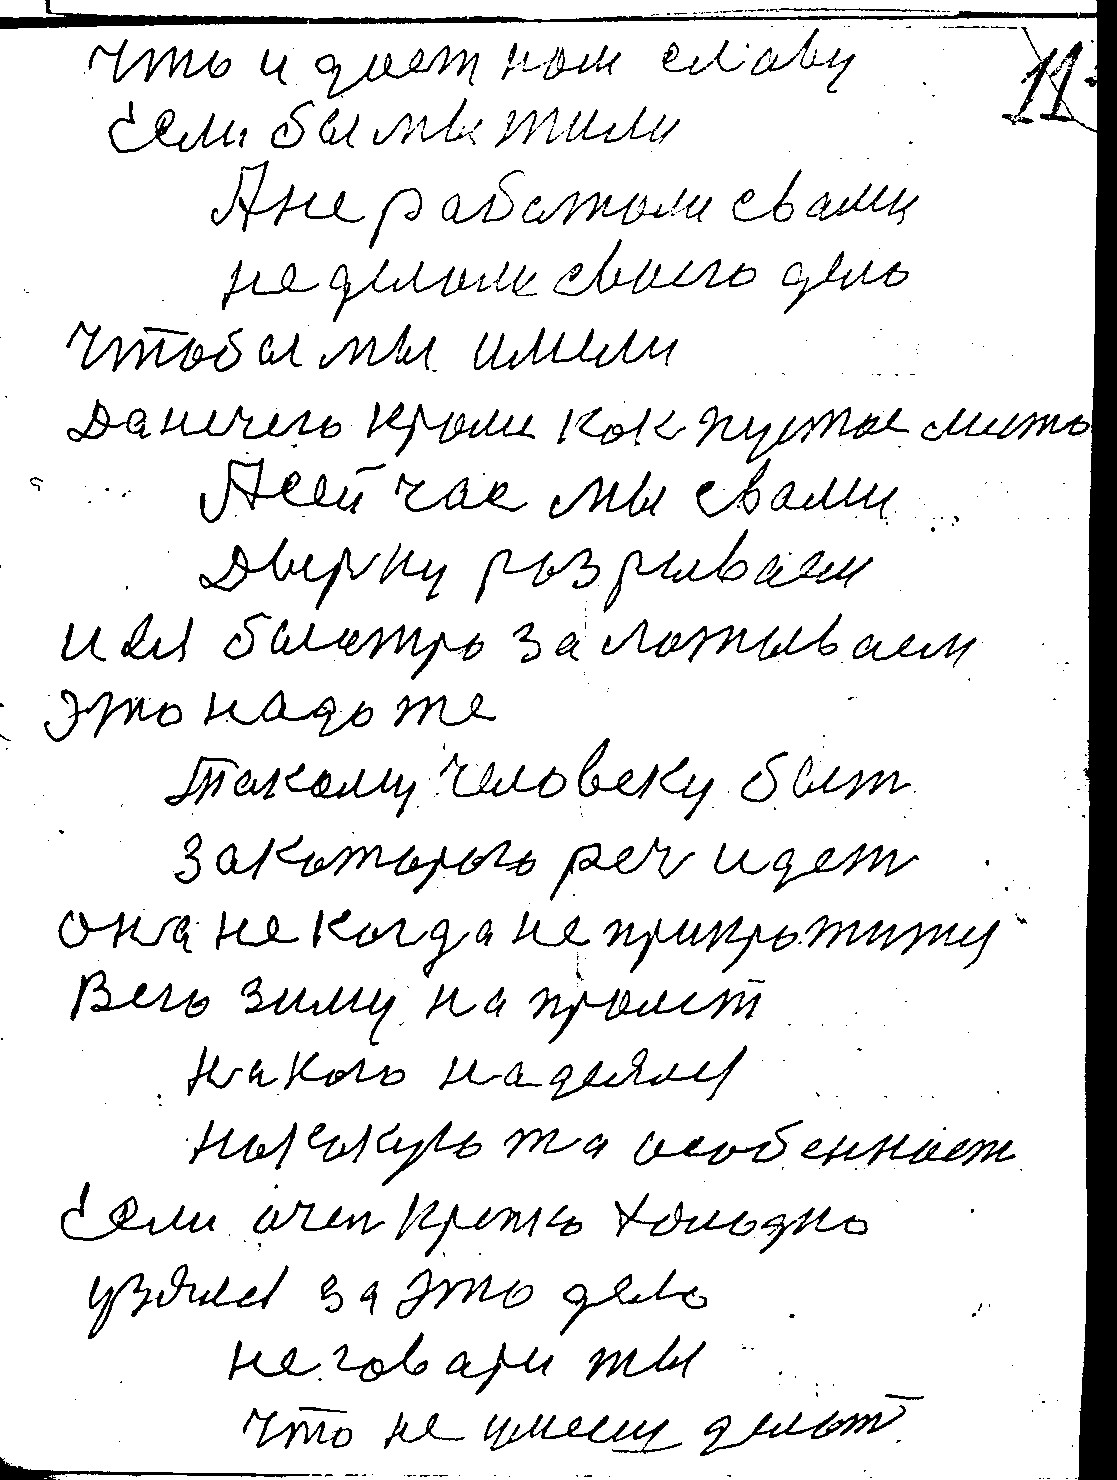 11
что и дает нам славу
Если бы мы жили
А не работали с вами
не делали своего дело
чтобы мы имели
Да ничего кроми как пустое место
А сейчас мы с вами
Дверку розрываем
и ея быстро заложываем
это надо же
такому человеку быт
за которого реч идет
она не когда не
Всю зиму на пролет
на кого надеялся
на какую та особенност
Если очен крепко холодно
узялся за это дело
не говари ты
что не умееш делат